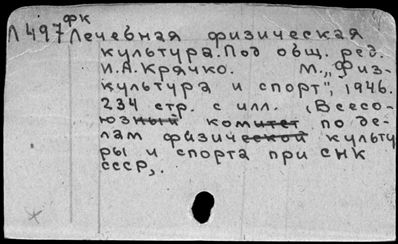 фк
Л497 Лечебная физическая
культура. Под общ. ред.
И.А. Крячко. М., „Физ-
культура и спорт", 1946.
234 стр. с илл. (Всесо-
юзный комитет по де-
лам физической культу
ры и спорта при СНК
СССР,.